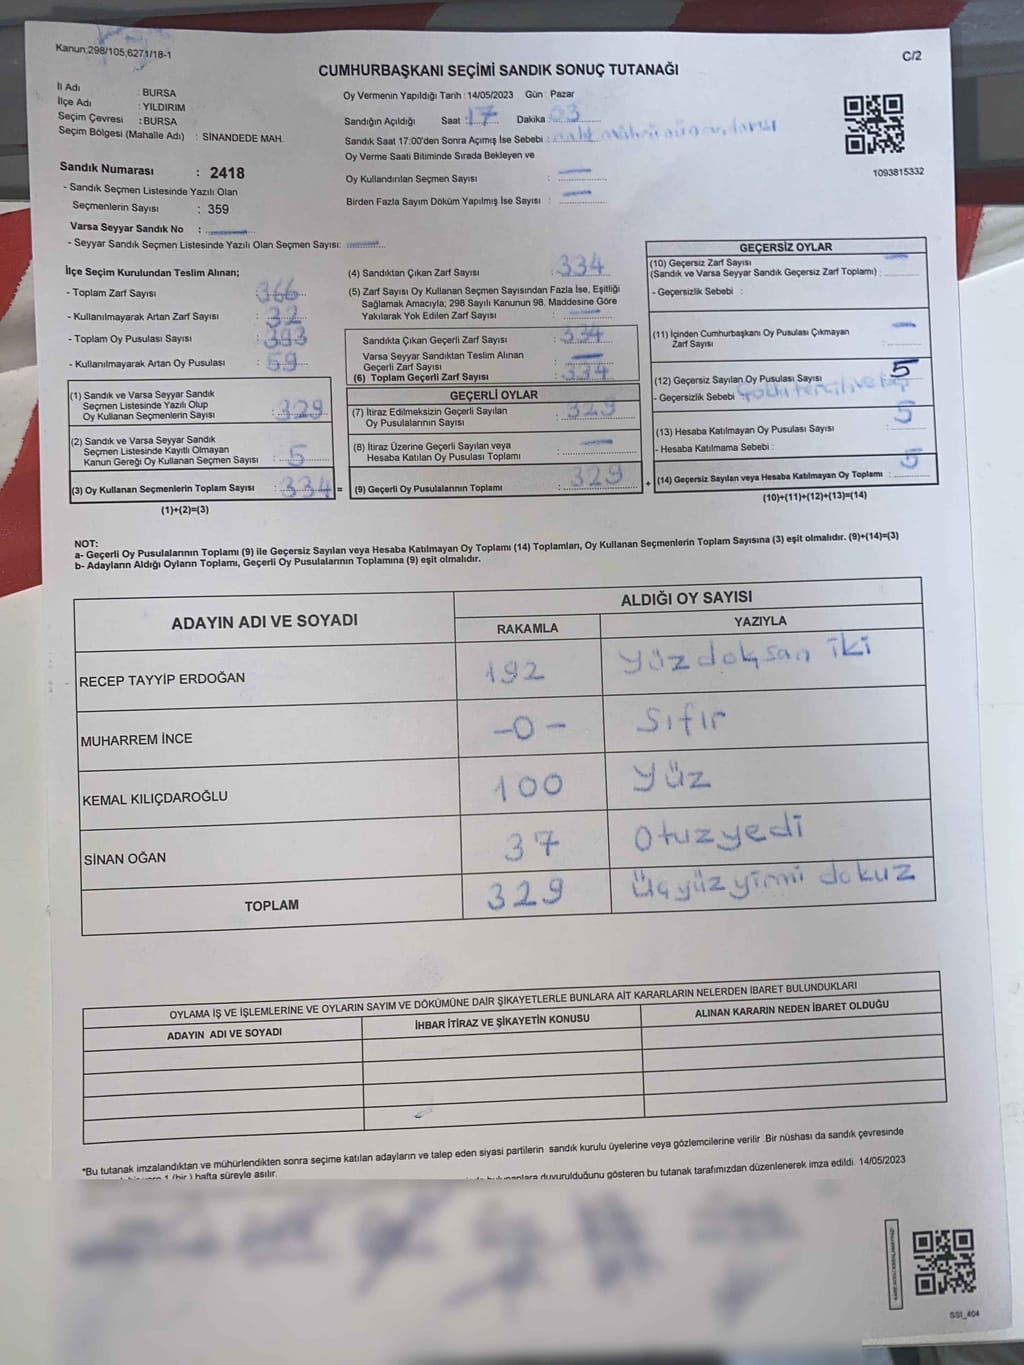 Kanun;298/105,6271/18-1
C/2
CUMHURBAŞKANI SEÇİMİ SANDIK SONUÇ TUTANAĞI
İl Adı : BURSA
İlçe Adı : YILDIRIM
Seçim Çevresi : BURSA
Seçim Bölgesi (Mahalle Adı) : SİNANDEDE MAH.
Oy Vermenin Yapıldığı Tarih : 14/05/2023 Gün : Pazar
Sandığın Açıldığı Saat : 17 Dakika : 23
Sandık Saat 17:00'den Sonra Açımış İse Sebebi :
Oy Verme Saati Bitiminde Sırada Bekleyen ve
Oy Kullandırılan Seçmen Sayısı : —
Birden Fazla Sayım Döküm Yapılmış İse Sayısı : —
1093815332
Sandık Numarası : 2418
- Sandık Seçmen Listesinde Yazılı Olan
Seçmenlerin Sayısı : 359
Varsa Seyyar Sandık No : —
- Seyyar Sandık Seçmen Listesinde Yazılı Olan Seçmen Sayısı: —
İlçe Seçim Kurulundan Teslim Alınan;
- Toplam Zarf Sayısı : 366
- Kullanılmayarak Artan Zarf Sayısı : 32
- Toplam Oy Pusulası Sayısı : 393
- Kullanılmayarak Artan Oy Pusulası : 59
(1) Sandık ve Varsa Seyyar Sandık
Seçmen Listesinde Yazılı Olup
Oy Kullanan Seçmenlerin Sayısı : 329
(2) Sandık ve Varsa Seyyar Sandık
Seçmen Listesinde Kayıtlı Olmayan
Kanun Gereği Oy Kullanan Seçmen Sayısı : 5
(3) Oy Kullanan Seçmenlerin Toplam Sayısı : 334 =
(1)+(2)=(3)
(4) Sandıktan Çıkan Zarf Sayısı : 334
(5) Zarf Sayısı Oy Kullanan Seçmen Sayısından Fazla İse, Eşitliği
Sağlamak Amacıyla; 298 Sayılı Kanunun 98. Maddesine Göre
Yakılarak Yok Edilen Zarf Sayısı : —
Sandıkta Çıkan Geçerli Zarf Sayısı : 334
Varsa Seyyar Sandıktan Teslim Alınan
Geçerli Zarf Sayısı : —
(6) Toplam Geçerli Zarf Sayısı : 334
GEÇERLİ OYLAR
(7) İtiraz Edilmeksizin Geçerli Sayılan
Oy Pusulalarının Sayısı : 329
(8) İtiraz Üzerine Geçerli Sayılan veya
Hesaba Katılan Oy Pusulası Toplamı : —
(9) Geçerli Oy Pusulalarının Toplamı : 329 +
GEÇERSİZ OYLAR
(10) Geçersiz Zarf Sayısı
(Sandık ve Varsa Seyyar Sandık Geçersiz Zarf Toplamı) : —
- Geçersizlik Sebebi :
(11) İçinden Cumhurbaşkanı Oy Pusulası Çıkmayan
Zarf Sayısı : —
(12) Geçersiz Sayılan Oy Pusulası Sayısı : 5
- Geçersizlik Sebebi :
(13) Hesaba Katılmayan Oy Pusulası Sayısı : 5
- Hesaba Katılmama Sebebi :
(14) Geçersiz Sayılan veya Hesaba Katılmayan Oy Toplamı : 5
(10)+(11)+(12)+(13)=(14)
NOT:
a- Geçerli Oy Pusulalarının Toplamı (9) ile Geçersiz Sayılan veya Hesaba Katılmayan Oy Toplamı (14) Toplamları, Oy Kullanan Seçmenlerin Toplam Sayısına (3) eşit olmalıdır. (9)+(14)=(3)
b- Adayların Aldığı Oyların Toplamı, Geçerli Oy Pusulalarının Toplamına (9) eşit olmalıdır.
ADAYIN ADI VE SOYADI
ALDIĞI OY SAYISI
RAKAMLA YAZIYLA
RECEP TAYYİP ERDOĞAN 192 yüz doksan iki
MUHARREM İNCE -0- Sıfır
KEMAL KILIÇDAROĞLU 100 yüz
SİNAN OĞAN 37 Otuzyedi
TOPLAM 329 Üçyüzyirmi dokuz
OYLAMA İŞ VE İŞLEMLERİNE VE OYLARIN SAYIM VE DÖKÜMÜNE DAİR ŞİKAYETLERLE BUNLARA AİT KARARLARIN NELERDEN İBARET BULUNDUKLARI
ADAYIN ADI VE SOYADI İHBAR İTİRAZ VE ŞİKAYETİN KONUSU ALINAN KARARIN NEDEN İBARET OLDUĞU
*Bu tutanak imzalandıktan ve mühürlendikten sonra seçime katılan adayların ve talep eden siyasi partilerin sandık kurulu üyelerine veya gözlemcilerine verilir .Bir nüshası da sandık çevresinde
1 (bir ) hafta süreyle asılır.
duyurulduğunu gösteren bu tutanak tarafımızdan düzenlenerek imza edildi. 14/05/2023
SSI_404